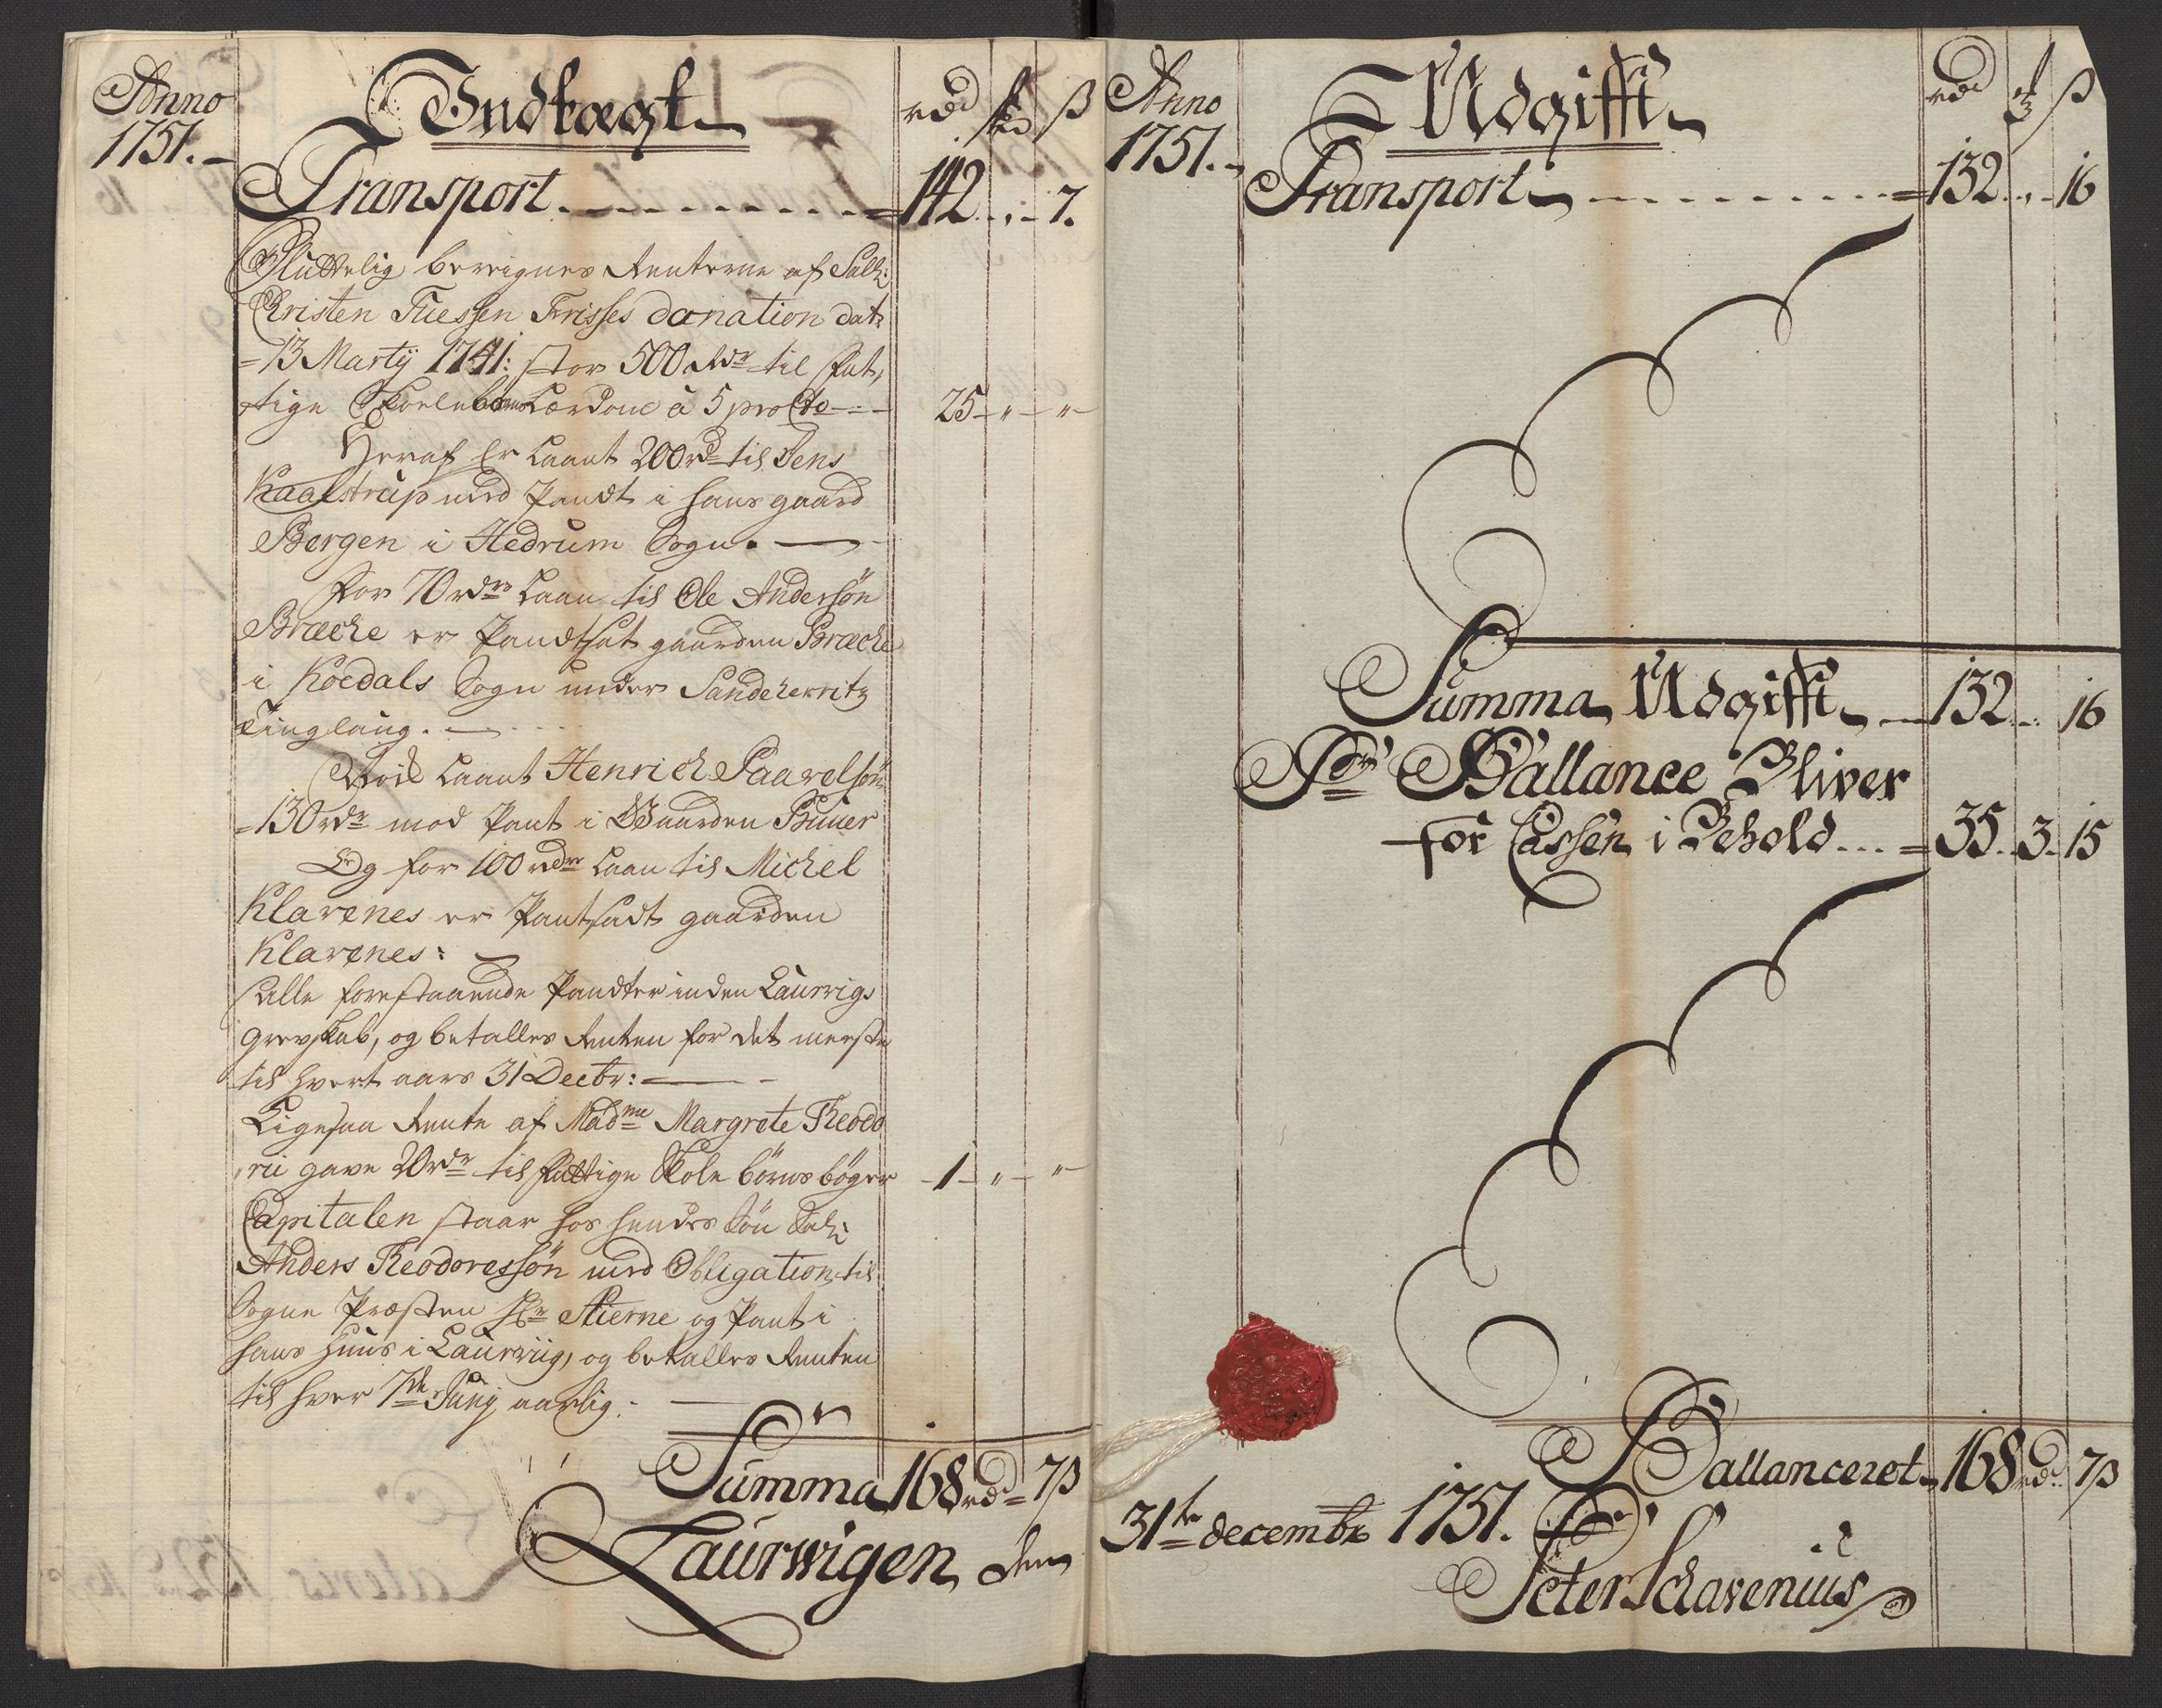 Anno
1751.
Indtægt
rdr ß
Transport 142 " 7.
Sluttelig beregnes Renterne af Salh:
Christen Thiessen Frisses donation dat:
13 Martÿ 1741: stor 500 Rdr til Fat,
tige Skoelebørns Lærdom à 5 procto 25 " "
Heraf er Laant 200 rd til Jens
Kaalstrup med Pandt i hans gaard
Bergen i Hedrum Sogn.
For 70 rdrs Laan til Ole Andersøn
Bræche er Pandtsat gaarden Bræche
i Koedals Sogn under Sandeherritz
Tinglaug.
Noch Laant Henrich Paavelsøn
130 rdr mod Pant i Gaarden Buuer
Og for 100 rdr Laan til Michel
Klavenes er Pantsadt gaarden
Klavenes:
alle forestaaende Pandter inden Laurvigs
grevskab, og betalles Renten for det meeste
til hvert aars 31 Decbr:
Ligesaa Rente af Madme Margrete Theodo
rii gave 20 rdr til fattige Skole børns bøger 1 " "
Capitalen staar hos hendes Søn Salh:
Anders Theodoressøn med Obligation til
Sogne Præsten Hr Stierne og Pant i
hans Huus i Laurwiig, og betalles Renten
til hver 7de Junÿ aarlig.
Summa 168 rdr 7 ß
Laurwigen den
Anno
1751.
Udgifft
rdr ß
Transport 132 " 16
Summa Udgifft 132 16
Pr Ballance Bliver
for Cassen i Behold 35 3 15
Balanceret 168 rdr 7 ß
31te decembr 1751.
Peter Schavenius